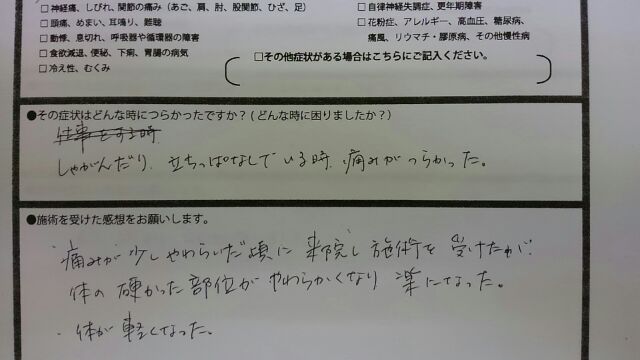 □神経痛、しびれ、関節の痛み(あご、肩、肘、股関節、ひざ、足)
□頭痛、めまい、耳鳴り、難聴
□動悸、息切れ、呼吸器や循環器の障害
□食欲減退、便秘、下痢、胃腸の病気
□冷え性、むくみ
□自律神経失調症、更年期障害
□花粉症、アレルギー、高血圧、糖尿病、
痛風、リウマチ・膠原病、その他慢性病
□その他症状がある場合はこちらにご記入ください。
●その症状はどんな時につらかったですか?(どんな時に困りましたか?)
仕事をする時
しゃがんだり、立ちっぱなしでいる時、痛みがつらかった。
●施術を受けた感想をお願いします。
・痛みが少しやわらいだ頃に来院し施術を受けたが、
体の硬かった部位がやわらかくなり楽になった。
・体が軽くなった。